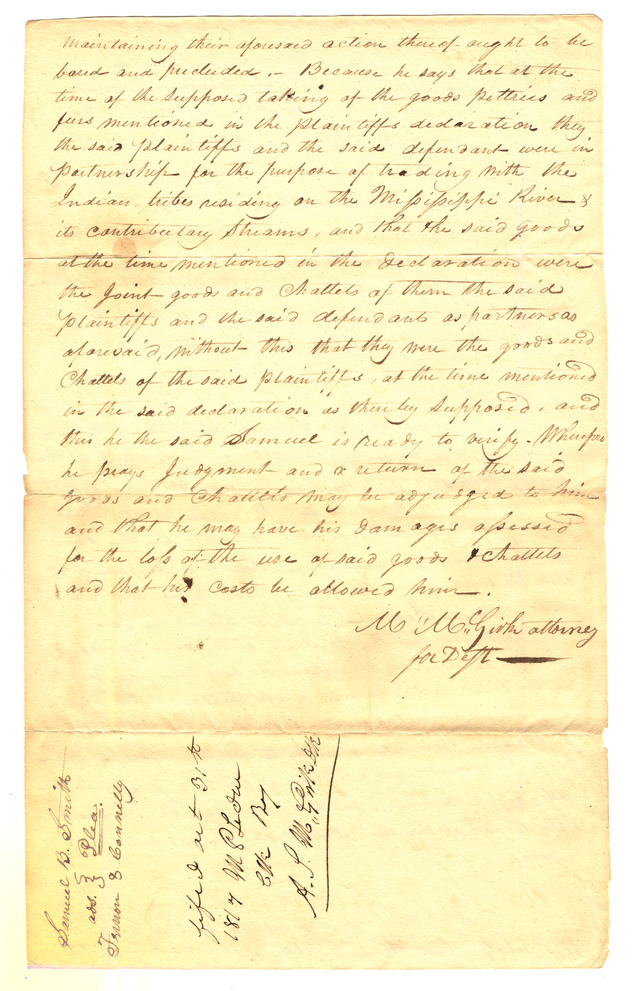 maintaining their aforesaid action thereof ought to be
bared and precluded. - Because he says that at the
time of the supposed taking of the goods Peltries and
furs mentioned in the plaintiffs declaration they
the said plaintiffs and the said defendant were in
partnership for the purpose of trading with the
Indian tribes residing on the Mississippi River &
its contributary Streams, and that the said goods
at the time mentioned in the declaration were
the Joint goods and Chattels of them the said
plaintiffs and the said defendant as partners as
aforesaid, without this that they were the goods and
Chattels of the said plaintiffs, at the time mentioned
in the said declaration as thereby supposed, and
this he the said Samuel is ready to verify. Wherefore
he prays Judgment and a return of the said
goods and Chattels may be adjudged to him
and that he may have his damages assessed
for the loss of the use of said goods & Chattels
and that his costs be allowed him.
M. McGirk attorney
for Deft
Samuel B. Smith
ads. } Plea.
& Connelly
filed oct 31st
1817 M P Leduc
Clk By
A. S. McGirk